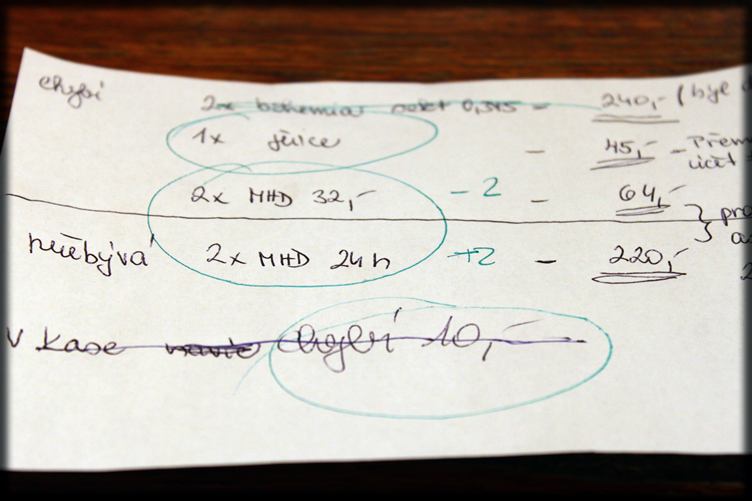 chybí 2x bohemia sekt 0,375 - 240,- (byl
1x juice - 45,- - Přem
účt
2x MHD 32,- - 2 - 64,-
přebývá 2x MHD 24h +2 - 220,-
V kase chybí 10,-